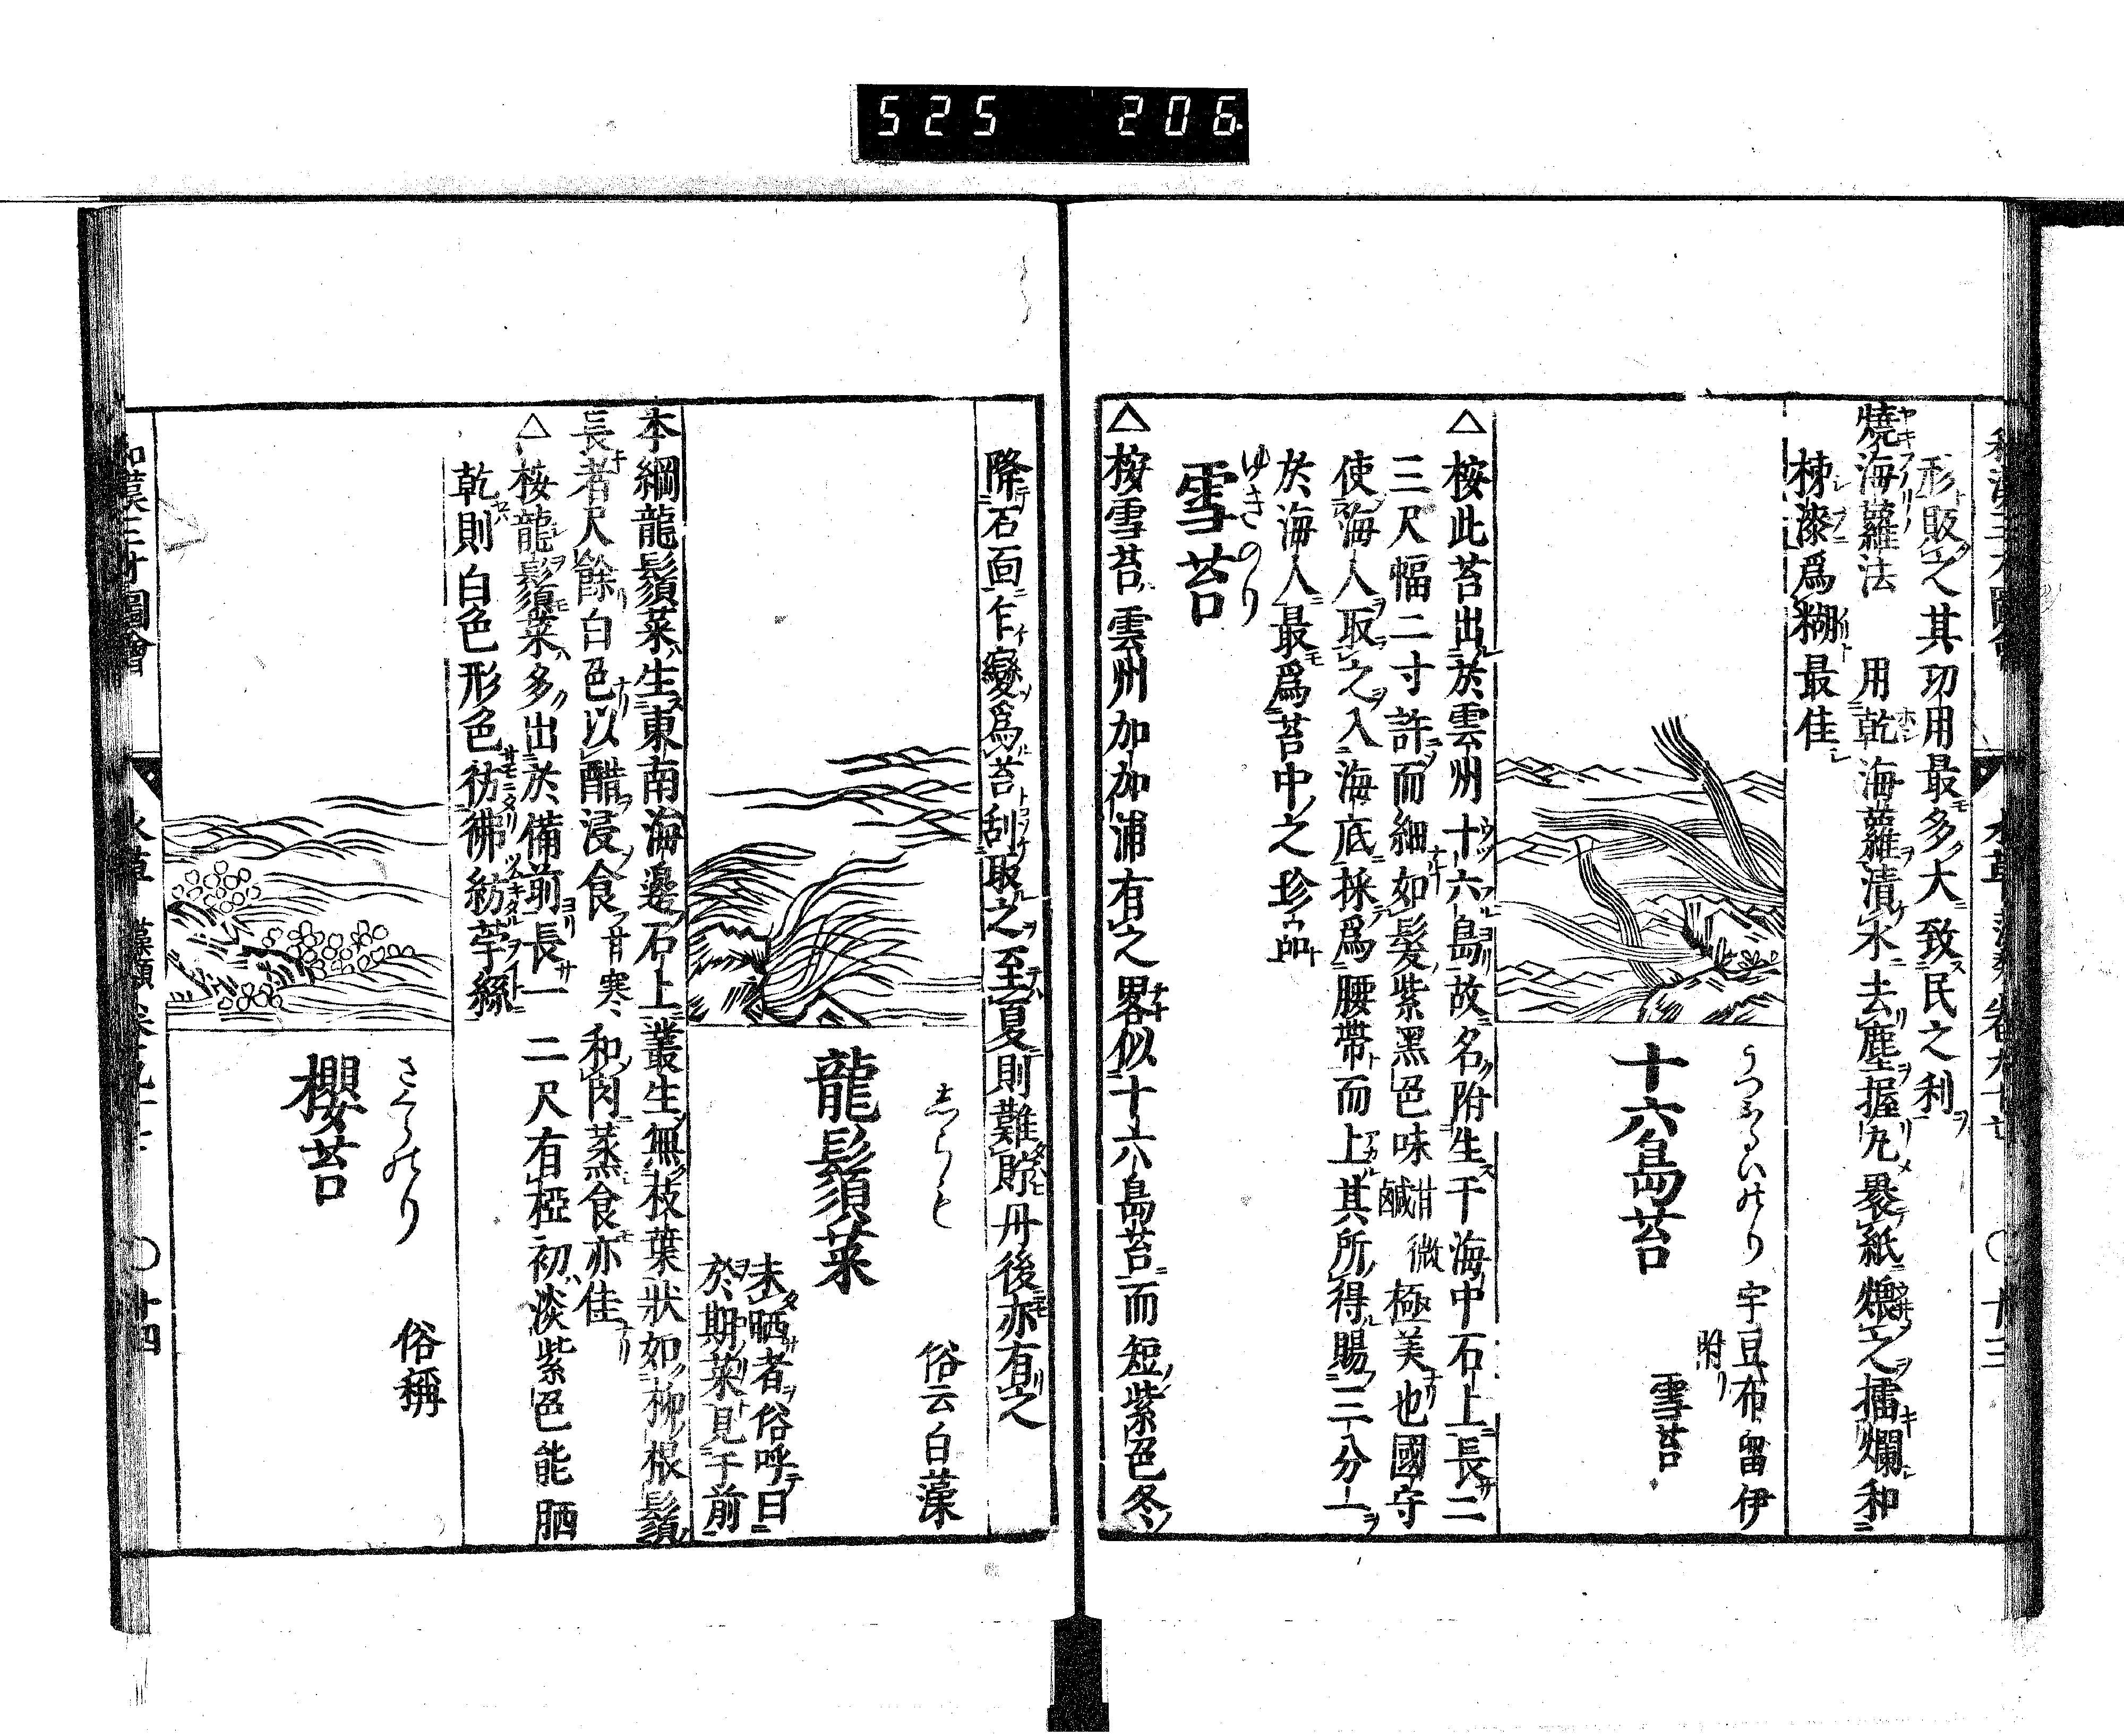 525 206
形販之其功用最多大致民之利
燒海蘿法 用乾海蘿漬水去塵握丸褁紙煨之擂爛和
梂漆爲糊最佳
うつふるいのり 宇豆布留伊
十六島苔
附リ 雪苔
△按此苔出於雲州十六島故名附生于海中石上長二
三尺幅二寸許而細如髮紫黑色味甘微鹹極美也國守
使海人取之入海底採爲腰帶而上其所得賜三分一
於海人最爲苔中之珍品
ゆきのり
雪苔
△按雪苔雲州加加浦有之畧似十六島苔而短紫色冬
降石面乍變爲苔刮取之至夏則難貯丹後亦有之
しらも 俗云白藻
龍鬚菜
未晒者俗呼曰
於期菜見于前
本綱龍鬚菜生東南海邊石上叢生無枝葉狀如柳根鬚
長者尺餘白色以醋浸食甘寒和肉蒸食亦佳
△按龍鬚菜多出於備前長一二尺有椏初淡紫色能晒
乾則白色形色彷彿紡苧絲
さくらのり 俗稱
櫻苔
和漢三才圖會 水草 藻類 〇十四
〇十三